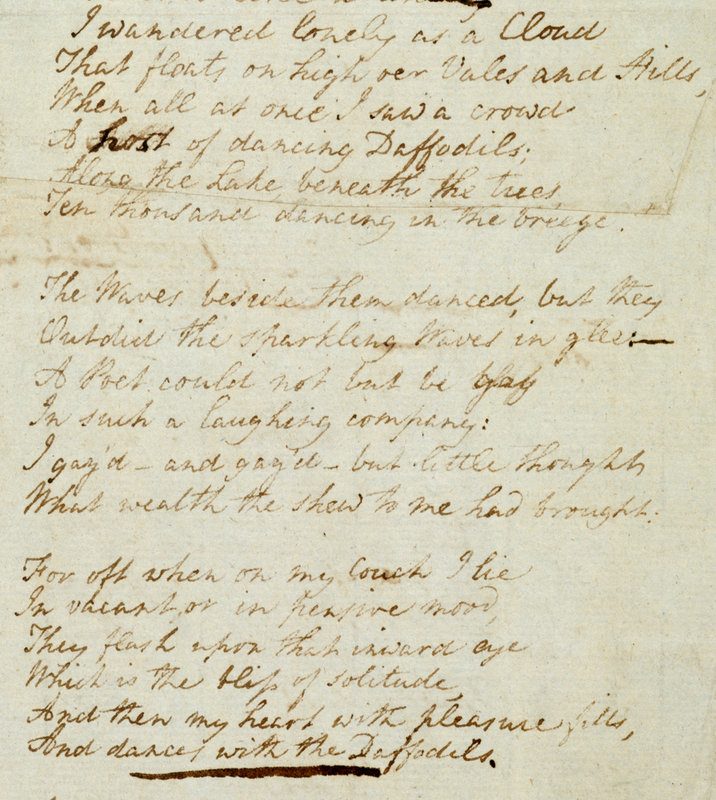 I wandered lonely as a Cloud
That floats on high oer Vales and Hills,
When all at once I saw a crowd
A host of dancing Daffodils;
Along the Lake, beneath the trees,
Ten thousand dancing in the breeze.
The Waves beside them danced, but they
Outdid the sparkling Waves in glee:—
A Poet could not but be gay
In such a laughing company:
I gaz'd – and gaz'd – but little thought
What wealth the shew to me had brought:
For oft when on my Couch I lie
In vacant, or in pensive mood,
They flash upon that inward eye
Which is the bliss of solitude,
And then my heart with pleasure fills,
And dances with the Daffodils.